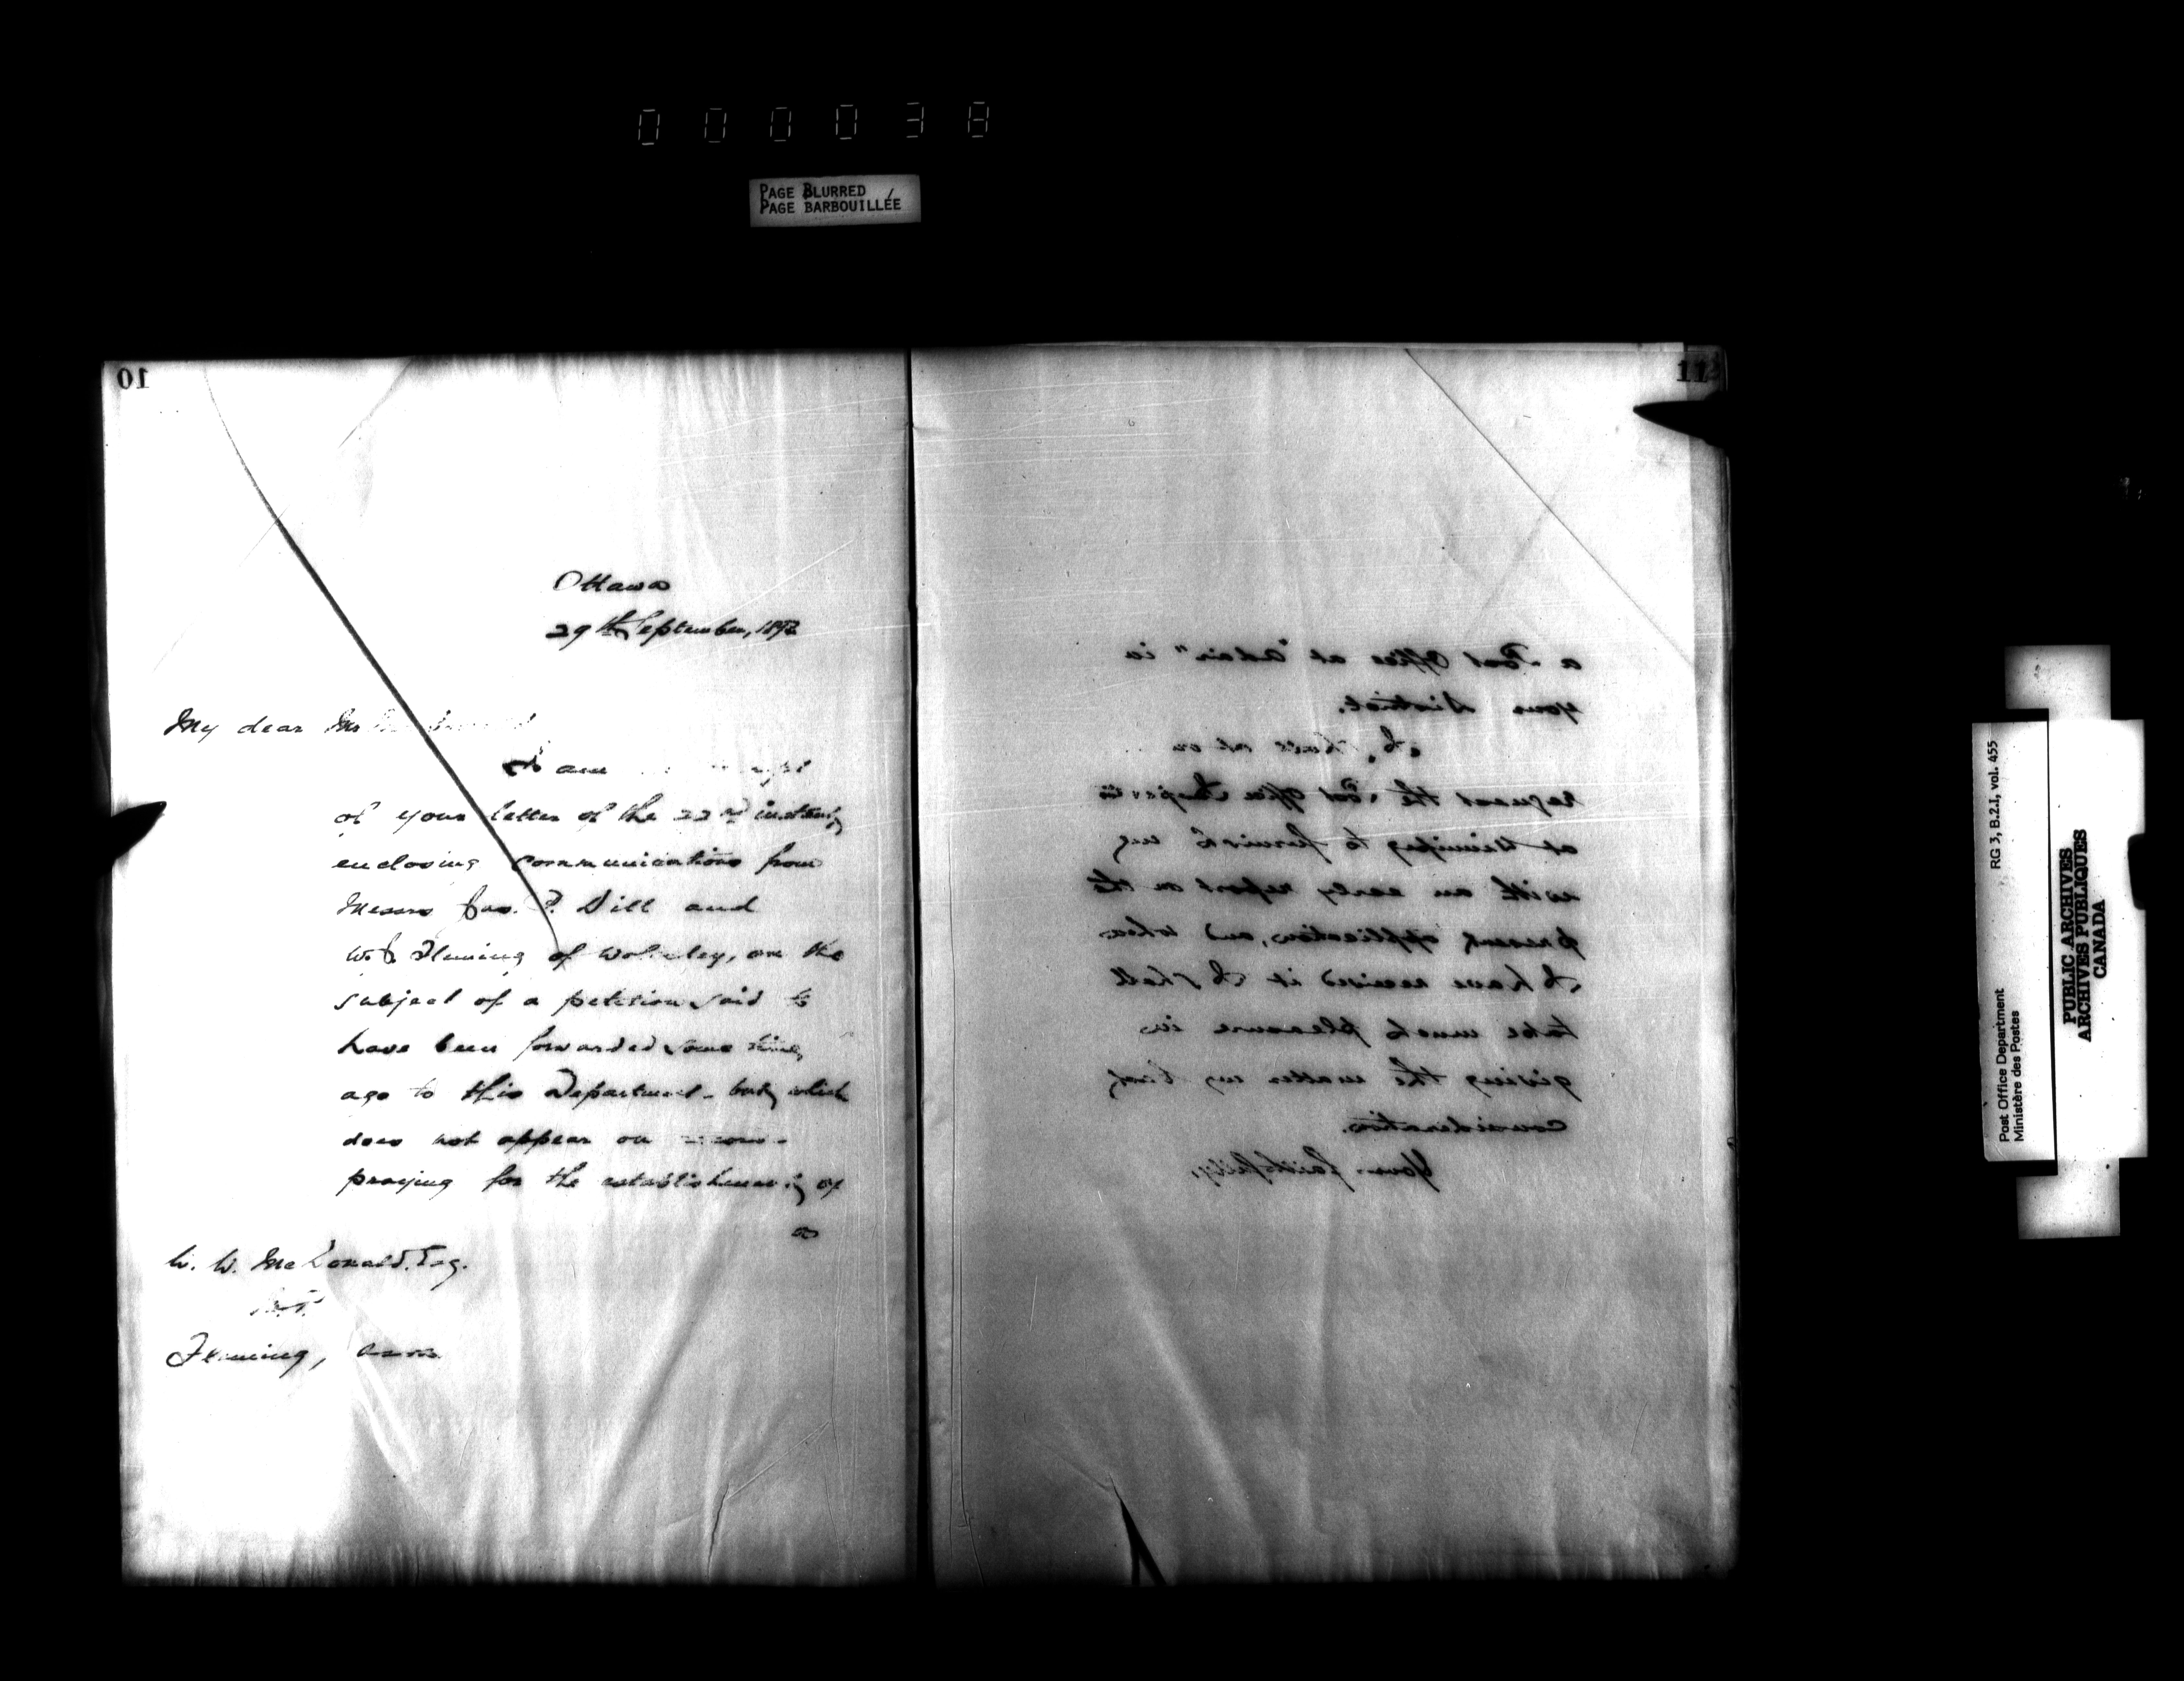 000038
PAGE BLURRED
PAGE BARBOUILLÉE
10
Ottawa
29th September, 1892
My dear Mr
I am
of your letter of the 22nd instant,
enclosing communications from
Messrs Jas. P. Dill and
W. J. Fleming of Wolseley, on the
subject of a petition said to
have been forwarded some time
ago to this Department - but which
does not appear on
praying for the establishment of
a
W. W. McDonald, Esq.
M.P.
Fleming, Assa
11
a Post Office at "Adair" in
your District.
I shall at on
request the Post Office Inspector
at Winnipeg to furnish me
with an early report on the
present application, and when
I have received it I shall
take much pleasure in
giving the matter my best
consideration.
Yours faithfully,
Post Office Department
Ministère des Postes
RG 3, B.2.I, vol. 455
PUBLIC ARCHIVES
ARCHIVES PUBLIQUES
CANADA